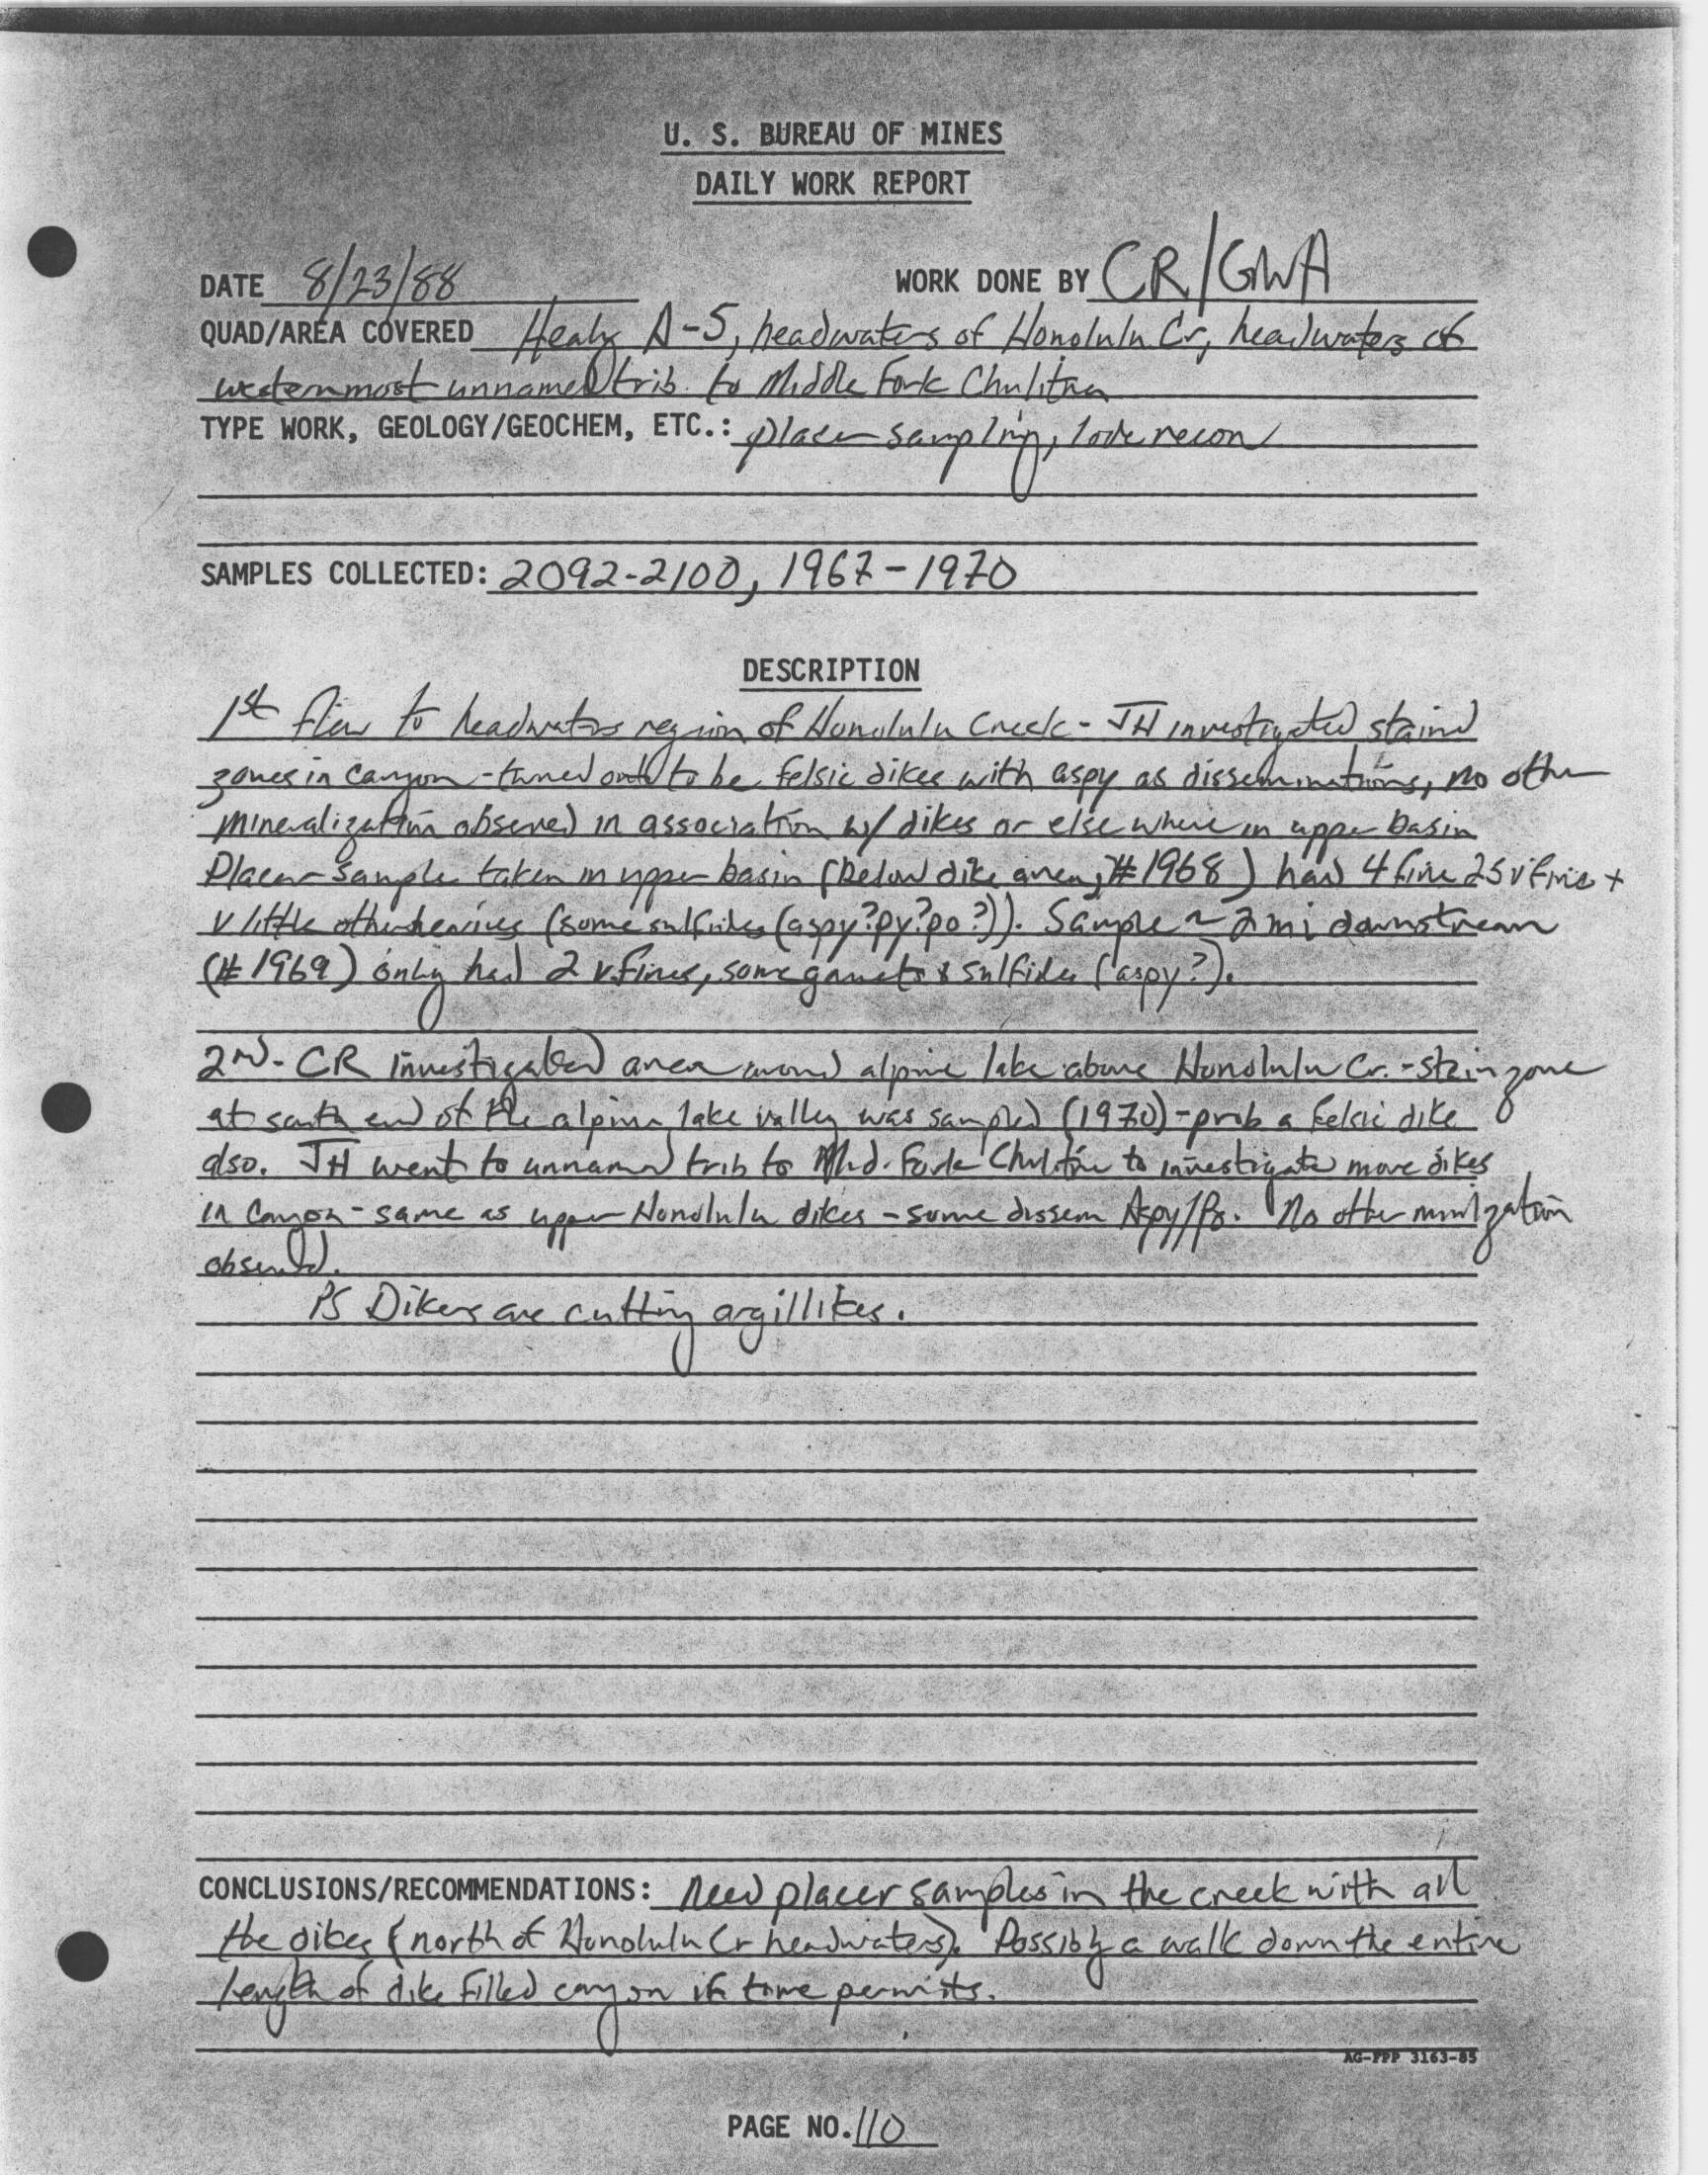 U. S. BUREAU OF MINES
DAILY WORK REPORT
DATE 8/23/88 WORK DONE BY CR/GWA
QUAD/AREA COVERED Healy A-5, headwaters of Honolulu Cr, headwaters of
westernmost unnamed trib. to Middle Fork Chulitna
TYPE WORK, GEOLOGY/GEOCHEM, ETC.: placer sampling, lode recon
SAMPLES COLLECTED: 2092-2100, 1967-1970
DESCRIPTION
1st flew to headwaters region of Honolulu Creek - JH investigated stained
zones in canyon - turned out to be felsic dikes with aspy as disseminations, no other
mineralization observed in association w/ dikes or elsewhere in upper basin
Placer sample taken in upper basin (below dike area, #1968) had 4 fine 25 v fine +
v little other heavies (some sulfides (aspy? py? po?)). Sample ~ 2 mi downstream
(#1969) only had 2 v. fines, some garnets & sulfides (aspy?).
2nd - CR investigated area around alpine lake above Honolulu Cr. - stain zone
at south end of the alpine lake valley was sampled (1970) - prob a felsic dike
also. JH went to unnamed trib to Mid. Fork Chulitna to investigate more dikes
in canyon - same as upper Honolulu dikes - some dissem Aspy/Po. No other minlzation
observed.
PS Dikes are cutting argillites.
CONCLUSIONS/RECOMMENDATIONS: Need placer samples in the creek with all
the dikes (north of Honolulu Cr headwaters). Possibly a walk down the entire
length of dike filled canyon if time permits.
AG-FPP 3163-85
PAGE NO. 110